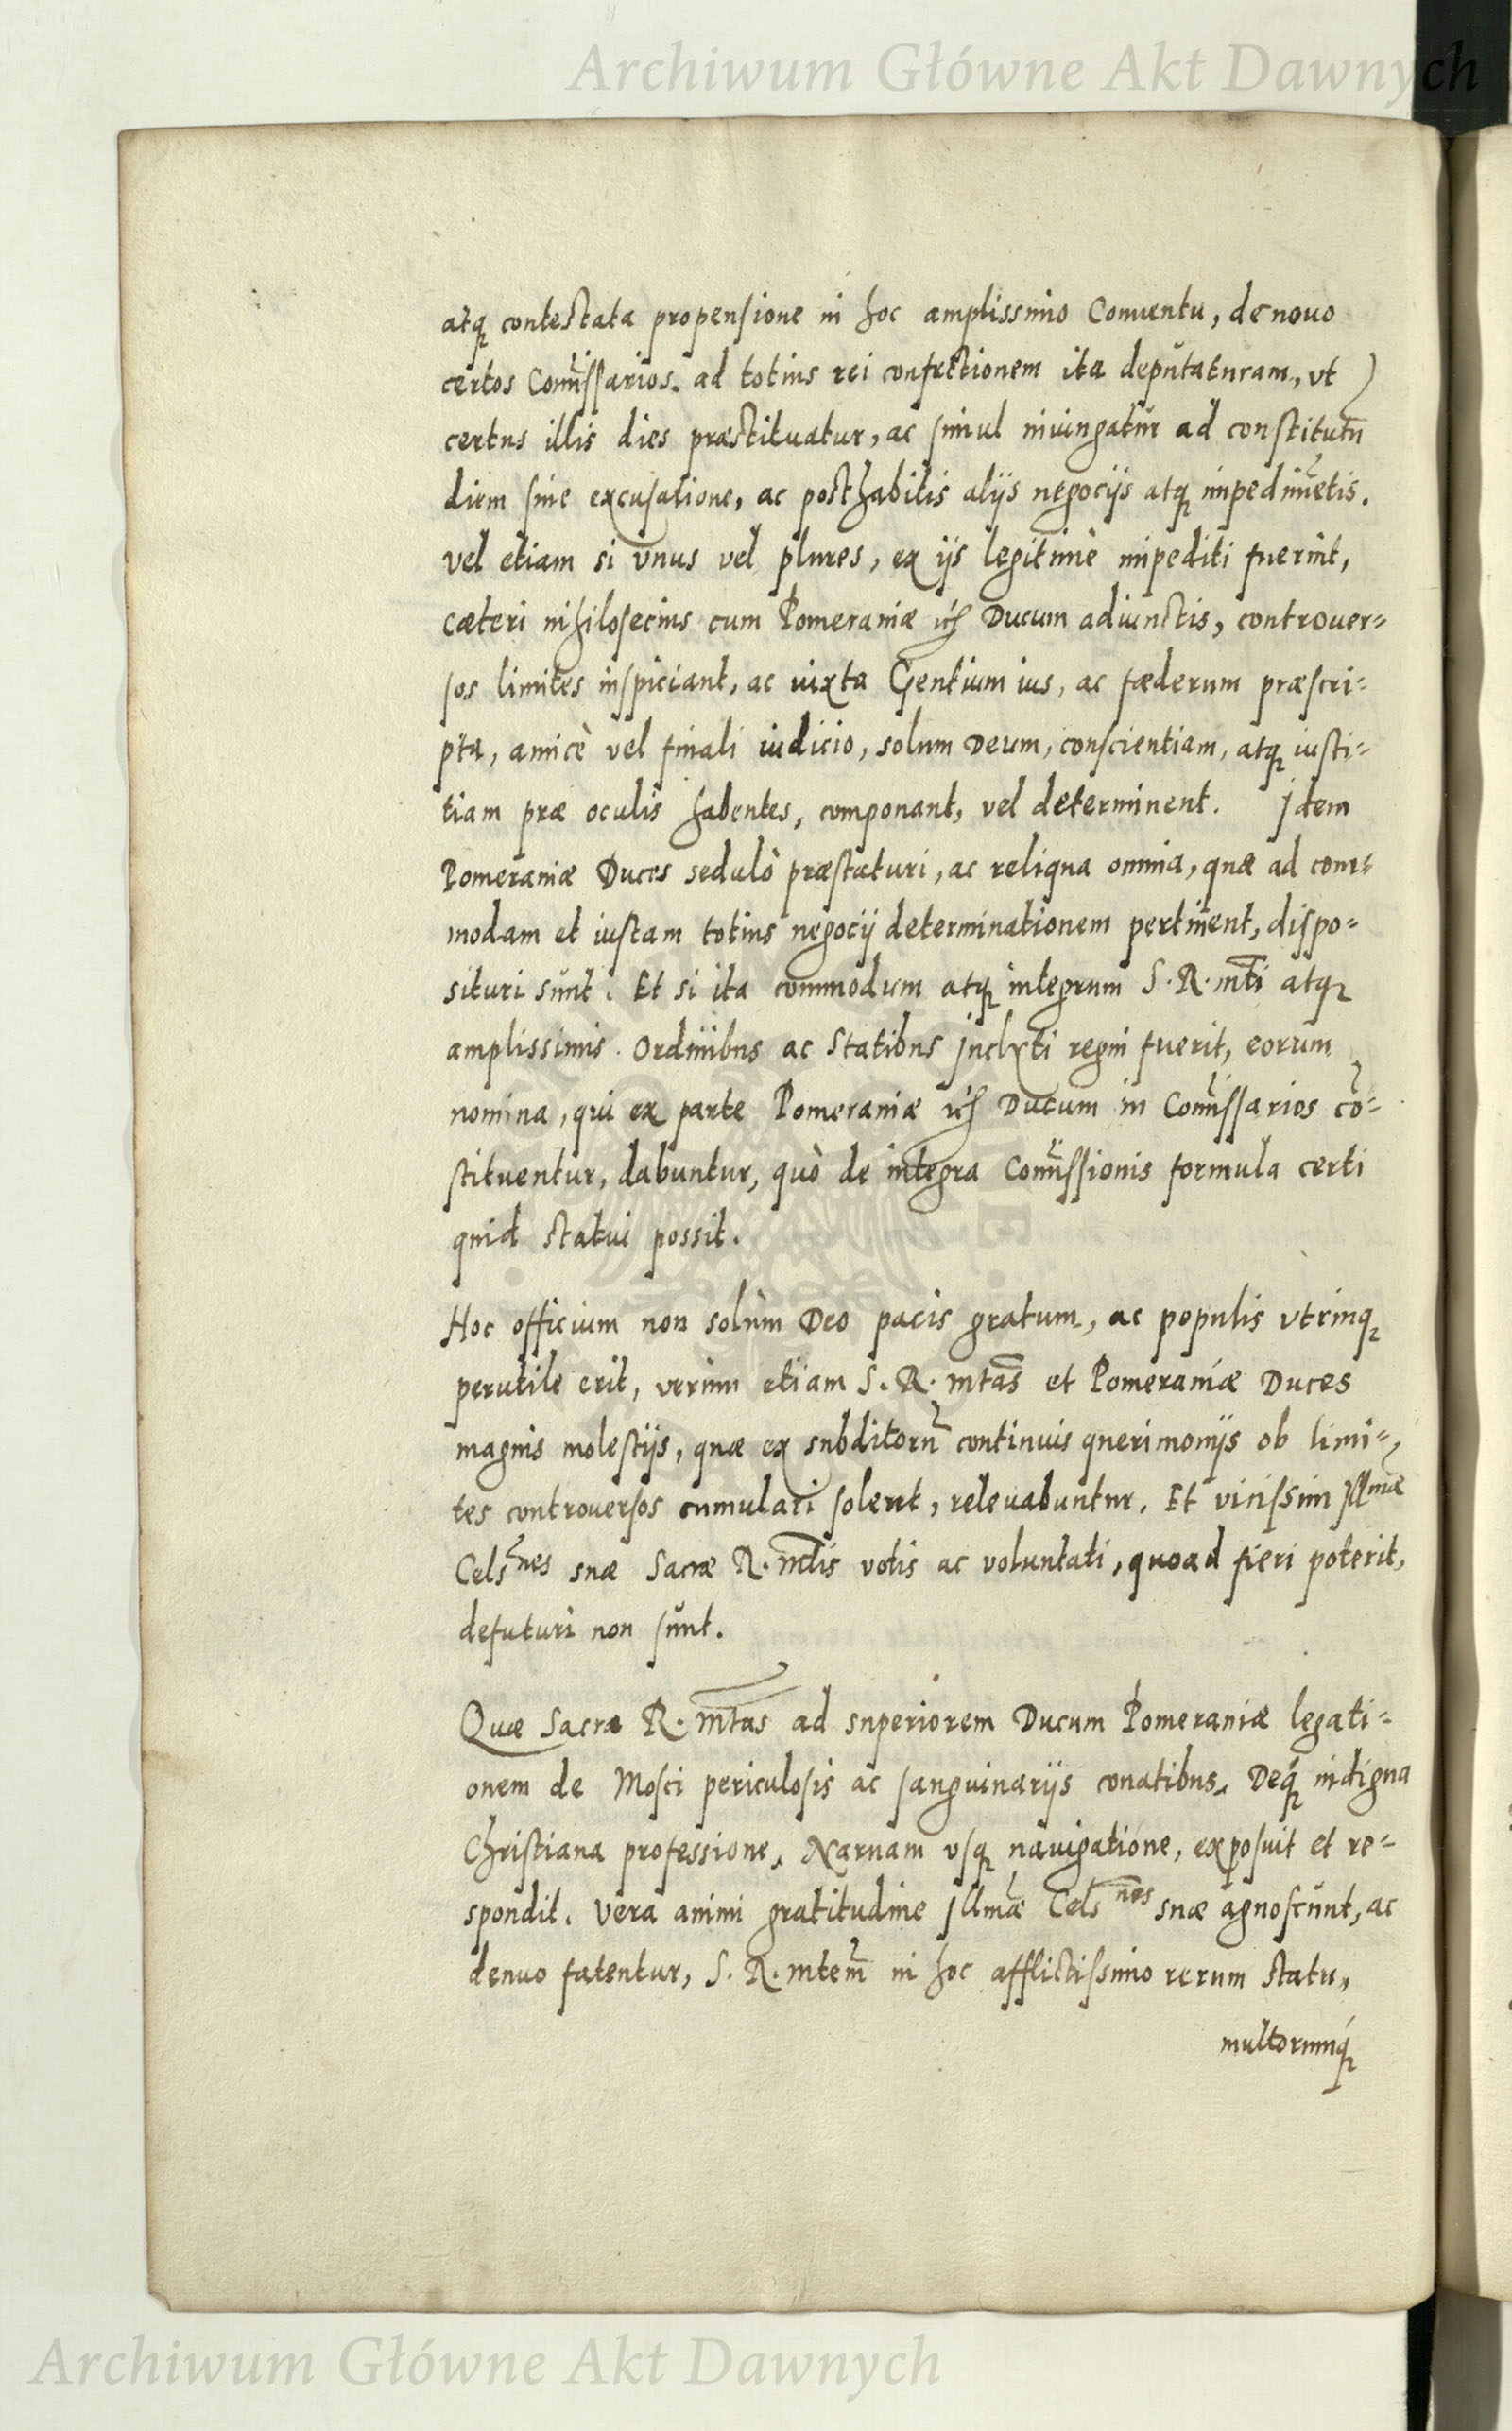 Archiwum Główne Akt Dawnych
atq contestata propensione in hoc amplissimo Conuentu, de nouo
certos Comissarios. ad totius rei confectionem ita deputaturam, vt
certus illis dies præstituatur, ac simul iniungatur ad constitutū
diem sine excusatione, ac posthabitis alijs negocijs atq impedimētis.
vel etiam si vnus vel plures, ex ijs legitimè impediti fuerint,
cæteri nihilosecius cum Pomeraniæ ich Ducum adiunctis, controuer=
sos limites inspiciant, ac iuxta Gentium ius, ac fœderum præscri=
pta, amicè vel finali iudicio, solum Deum, conscientiam, atq iusti=
tiam præ oculis habentes, componant, vel determinent. Idem
Pomeraniæ Duces sedulò præstaturi, ac reliqua omnia, quæ ad com=
modam et iustam totius negocij determinationem pertinent, dispo=
situri sunt. Et si ita commodum atq integrum S. R. mti atq
amplissimis Ordinibus ac Statibus inclyti regni fuerit, eorum
nomina, qui ex parte Pomeraniæ ich Ducum in Comissarios cō=
stituentur, dabuntur, quò de integra Comissionis formula certi
quid statui possit.
Hoc officium non solùm Deo pacis gratum, ac populis vtrinq
perutile erit, verùm etiam S. R. mtas et Pomeraniæ Duces
magnis molestijs, quæ ex subditorū continuis querimonijs ob limi=
tes controuersos cumulari solent, releuabuntur. Et vicissim Illmæ
Celsnes suæ Sacræ R. mtis votis ac voluntati, quoad fieri poterit,
defuturi non sunt.
Quæ Sacra R. mtas ad superiorem Ducum Pomeraniæ legati=
onem de Mosci periculosis ac sanguinarijs conatibus, Deq indigna
Christiana professione, Narnam vsq nauigatione, exposuit et re=
spondit. Vera animi gratitudine Illmæ Celsnes suæ agnoscunt, ac
denuo fatentur, S. R. mtem in hoc afflictissimo rerum statu,
multorumq
Archiwum Główne Akt Dawnych